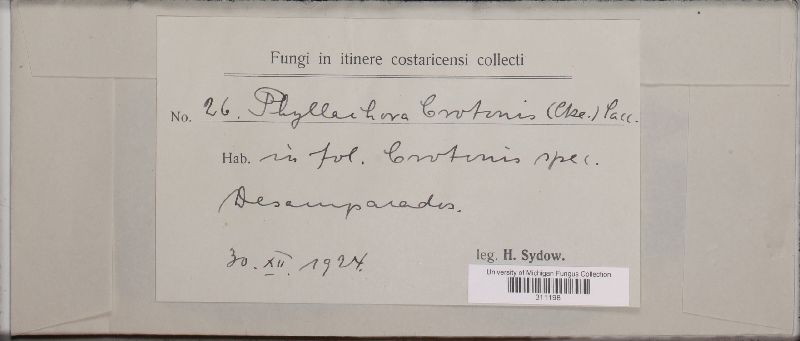 Fungi in itinere costaricensi collecti
No. 26. Phyllachora Crotonis (Cke.) Sacc.
Hab. in fol. Crotonis spec.
Desamparados.
30. XII. 1924.
leg. H. Sydow.
University of Michigan Fungus Collection
311198